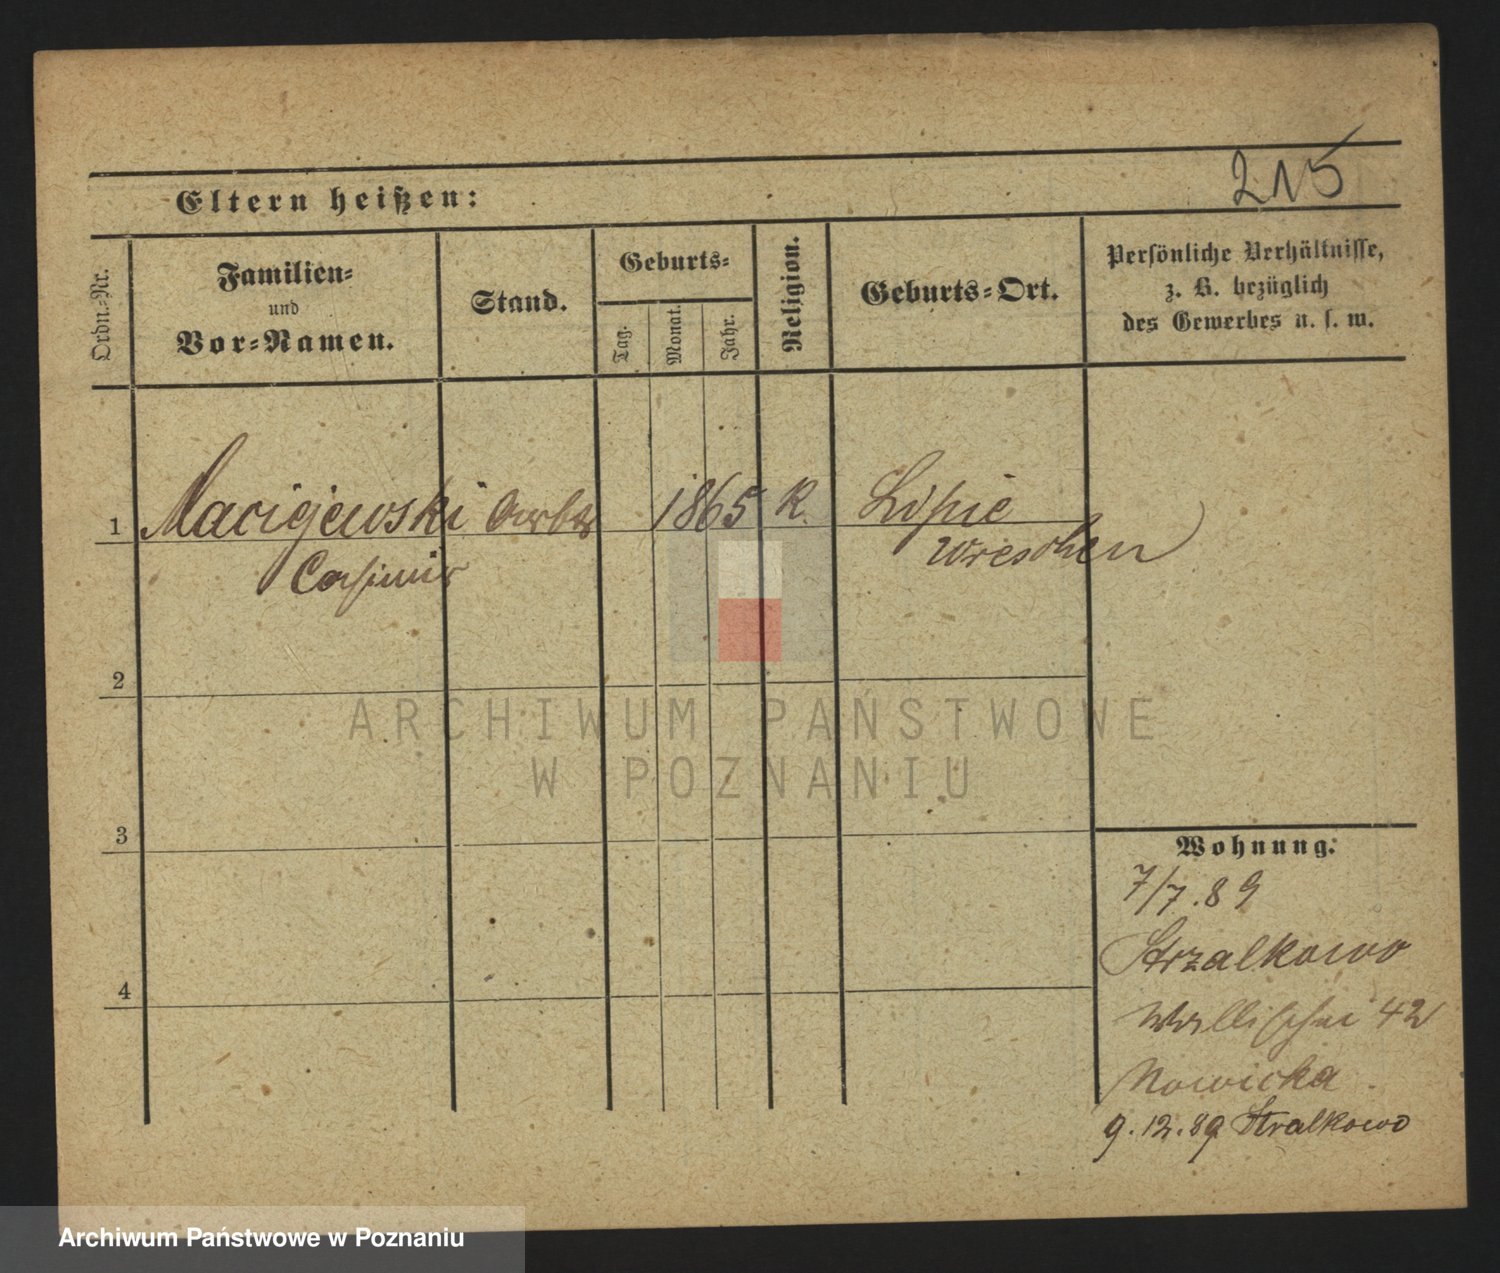 215
Eltern heißen:
Ordn.-Nr.
Familien-
und
Vor-Namen.
Stand.
Geburts-
Tag.
Monat.
Jahr.
Religion.
Geburts-Ort.
Persönliche Verhältnisse,
z. B. bezüglich
des Gewerbes u. s. w.
1 Maciejewski Arbtr 1865 K. Lipie
Casimir Wreschen
2
ARCHIWUM PAŃSTWOWE
W POZNANIU
3
Wohnung:
7/7.89
Strzalkowo
4
Wallischei 42
Nowicka
9.12.89 Stralkowo
Archiwum Państwowe w Poznaniu